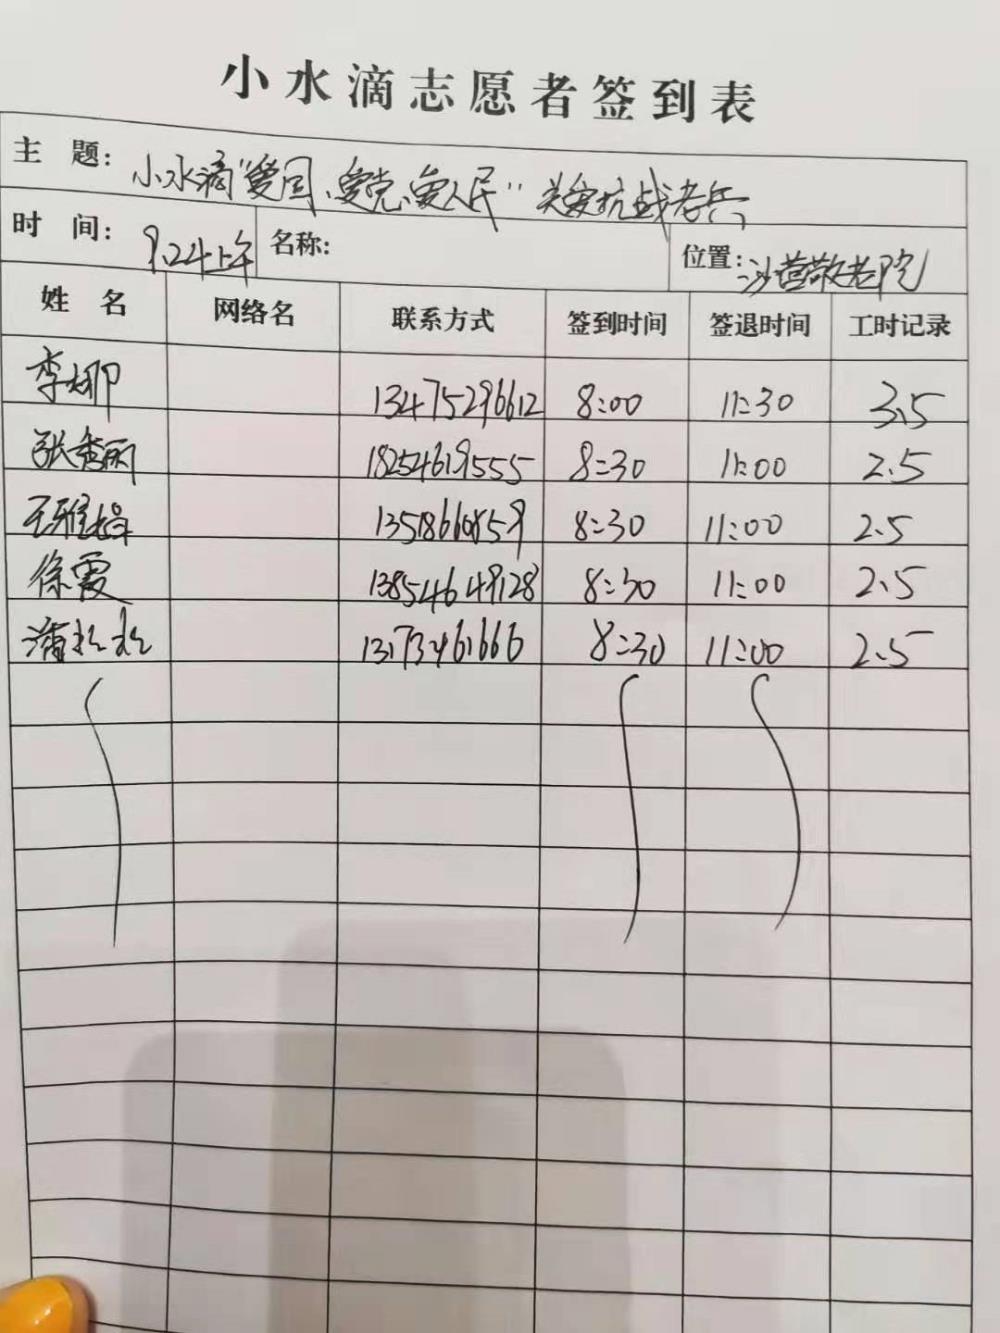 小水滴志愿者签到表
主 题: 小水滴“爱国、爱党、爱人民”关爱抗战老兵
时 间: 9.24上午 名称: 位置: 沙营敬老院
姓 名 网络名 联系方式 签到时间 签退时间 工时记录
李娜 13475296612 8:00 11:30 3.5
张秀丽 18254619555 8:30 11:00 2.5
王雅婷 8:30 11:00 2.5
徐霞 13854649128 8:30 11:00 2.5
蒲 13173461666 8:30 11:00 2.5